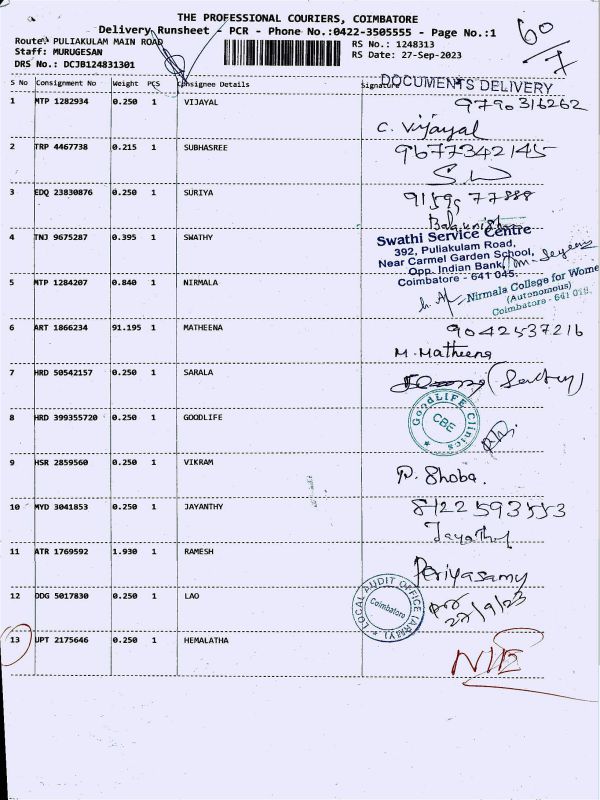 THE PROFESSIONAL COURIERS, COIMBATORE
Delivery Runsheet - PCR - Phone No.:0422-3505555 - Page No.:1
Route: PULIAKULAM MAIN ROAD
RS No.: 1248313
Staff: MURUGESAN
RS Date: 27-Sep-2023
DRS No.: DCJB124831301
60/7
S No Consignment No Weight PCS Consignee Details Signature
DOCUMENTS DELIVERY
1 MTP 1282934 0.250 1 VIJAYAL
9790316262
C. Vijayal
2 TRP 4467738 0.215 1 SUBHASREE
9677342145
3 EDQ 23830876 0.250 1 SURIYA
77888
4 TNJ 9675287 0.395 1 SWATHY
Swathi Service Centre
392, Puliakulam Road,
Near Carmel Garden School,
Opp. Indian Bank,
Coimbatore - 641 045.
5 MTP 1284207 0.840 1 NIRMALA
Nirmala College for Wome
(Autonomous)
Coimbatore - 641 018.
6 ART 1866234 91.195 1 MATHEENA
9042537216
M. Matheena
7 HRD 50542157 0.250 1 SARALA
8 HRD 399355720 0.250 1 GOODLIFE
GoodLIFE Clinics
CBE
9 HSR 2859560 0.250 1 VIKRAM
P. Shoba.
10 MYD 3041853 0.250 1 JAYANTHY
8122593553
11 ATR 1769592 1.930 1 RAMESH
Periyasamy
12 DDG 5017830 0.250 1 LAO
LOCAL AUDIT OFFICE (ARMY)
Coimbatore
27/9/23
13 UPT 2175646 0.250 1 HEMALATHA